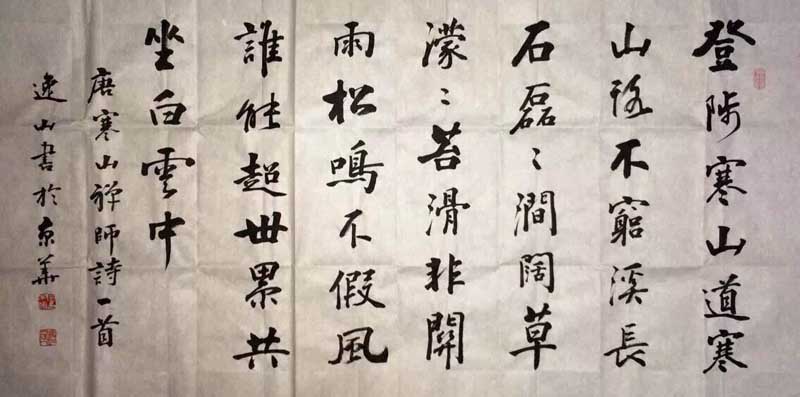 登陟寒山道寒
山路不窮溪長
石磊〻澗闊草
濛〻苔滑非關
雨松鳴不假風
誰能超世累共
坐白雲中
唐寒山禪師詩一首
逸山書於京華